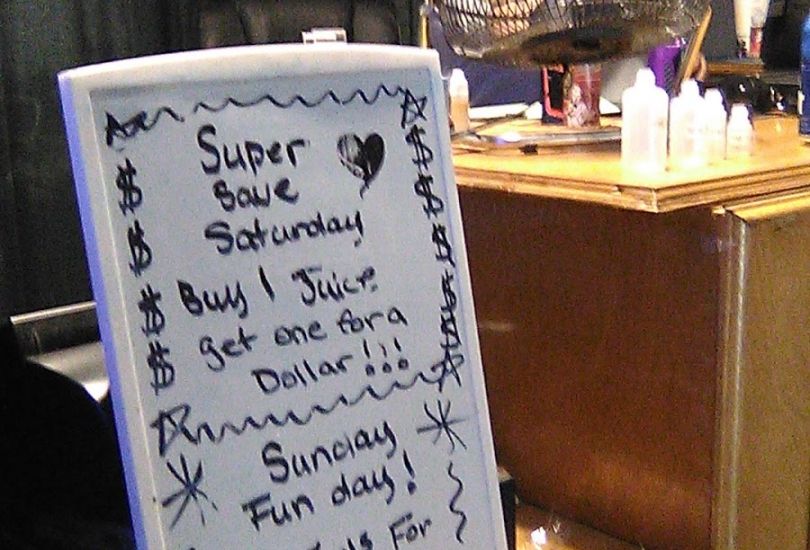 Super
Save
Saturday
Buy 1 Juice
get one for a
Dollar!!!
Sunday
Fun day!
For